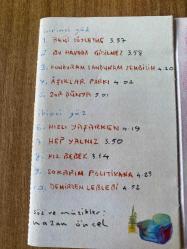 birinci yüz
1. BENİ SÖYLETME 3.57
2. BU HAVADA GİDİLMEZ 3.58
3. KUNDURAM SANDUKAM SENDİĞİM 4.20
4. AŞIKLAR PARKI 4.02
5. ZOR DÜNYA 5.01
ikinci yüz
6. HIZLI YAŞARKEN 4.19
7. HEP YALNIZ 3.50
8. KIZ BEBEK 3.54
9. SOKARIM POLİTİKANA 4.23
10. DEMİRDEN LEBLEBİ 4.52
söz ve müzikler:
nazan öncel